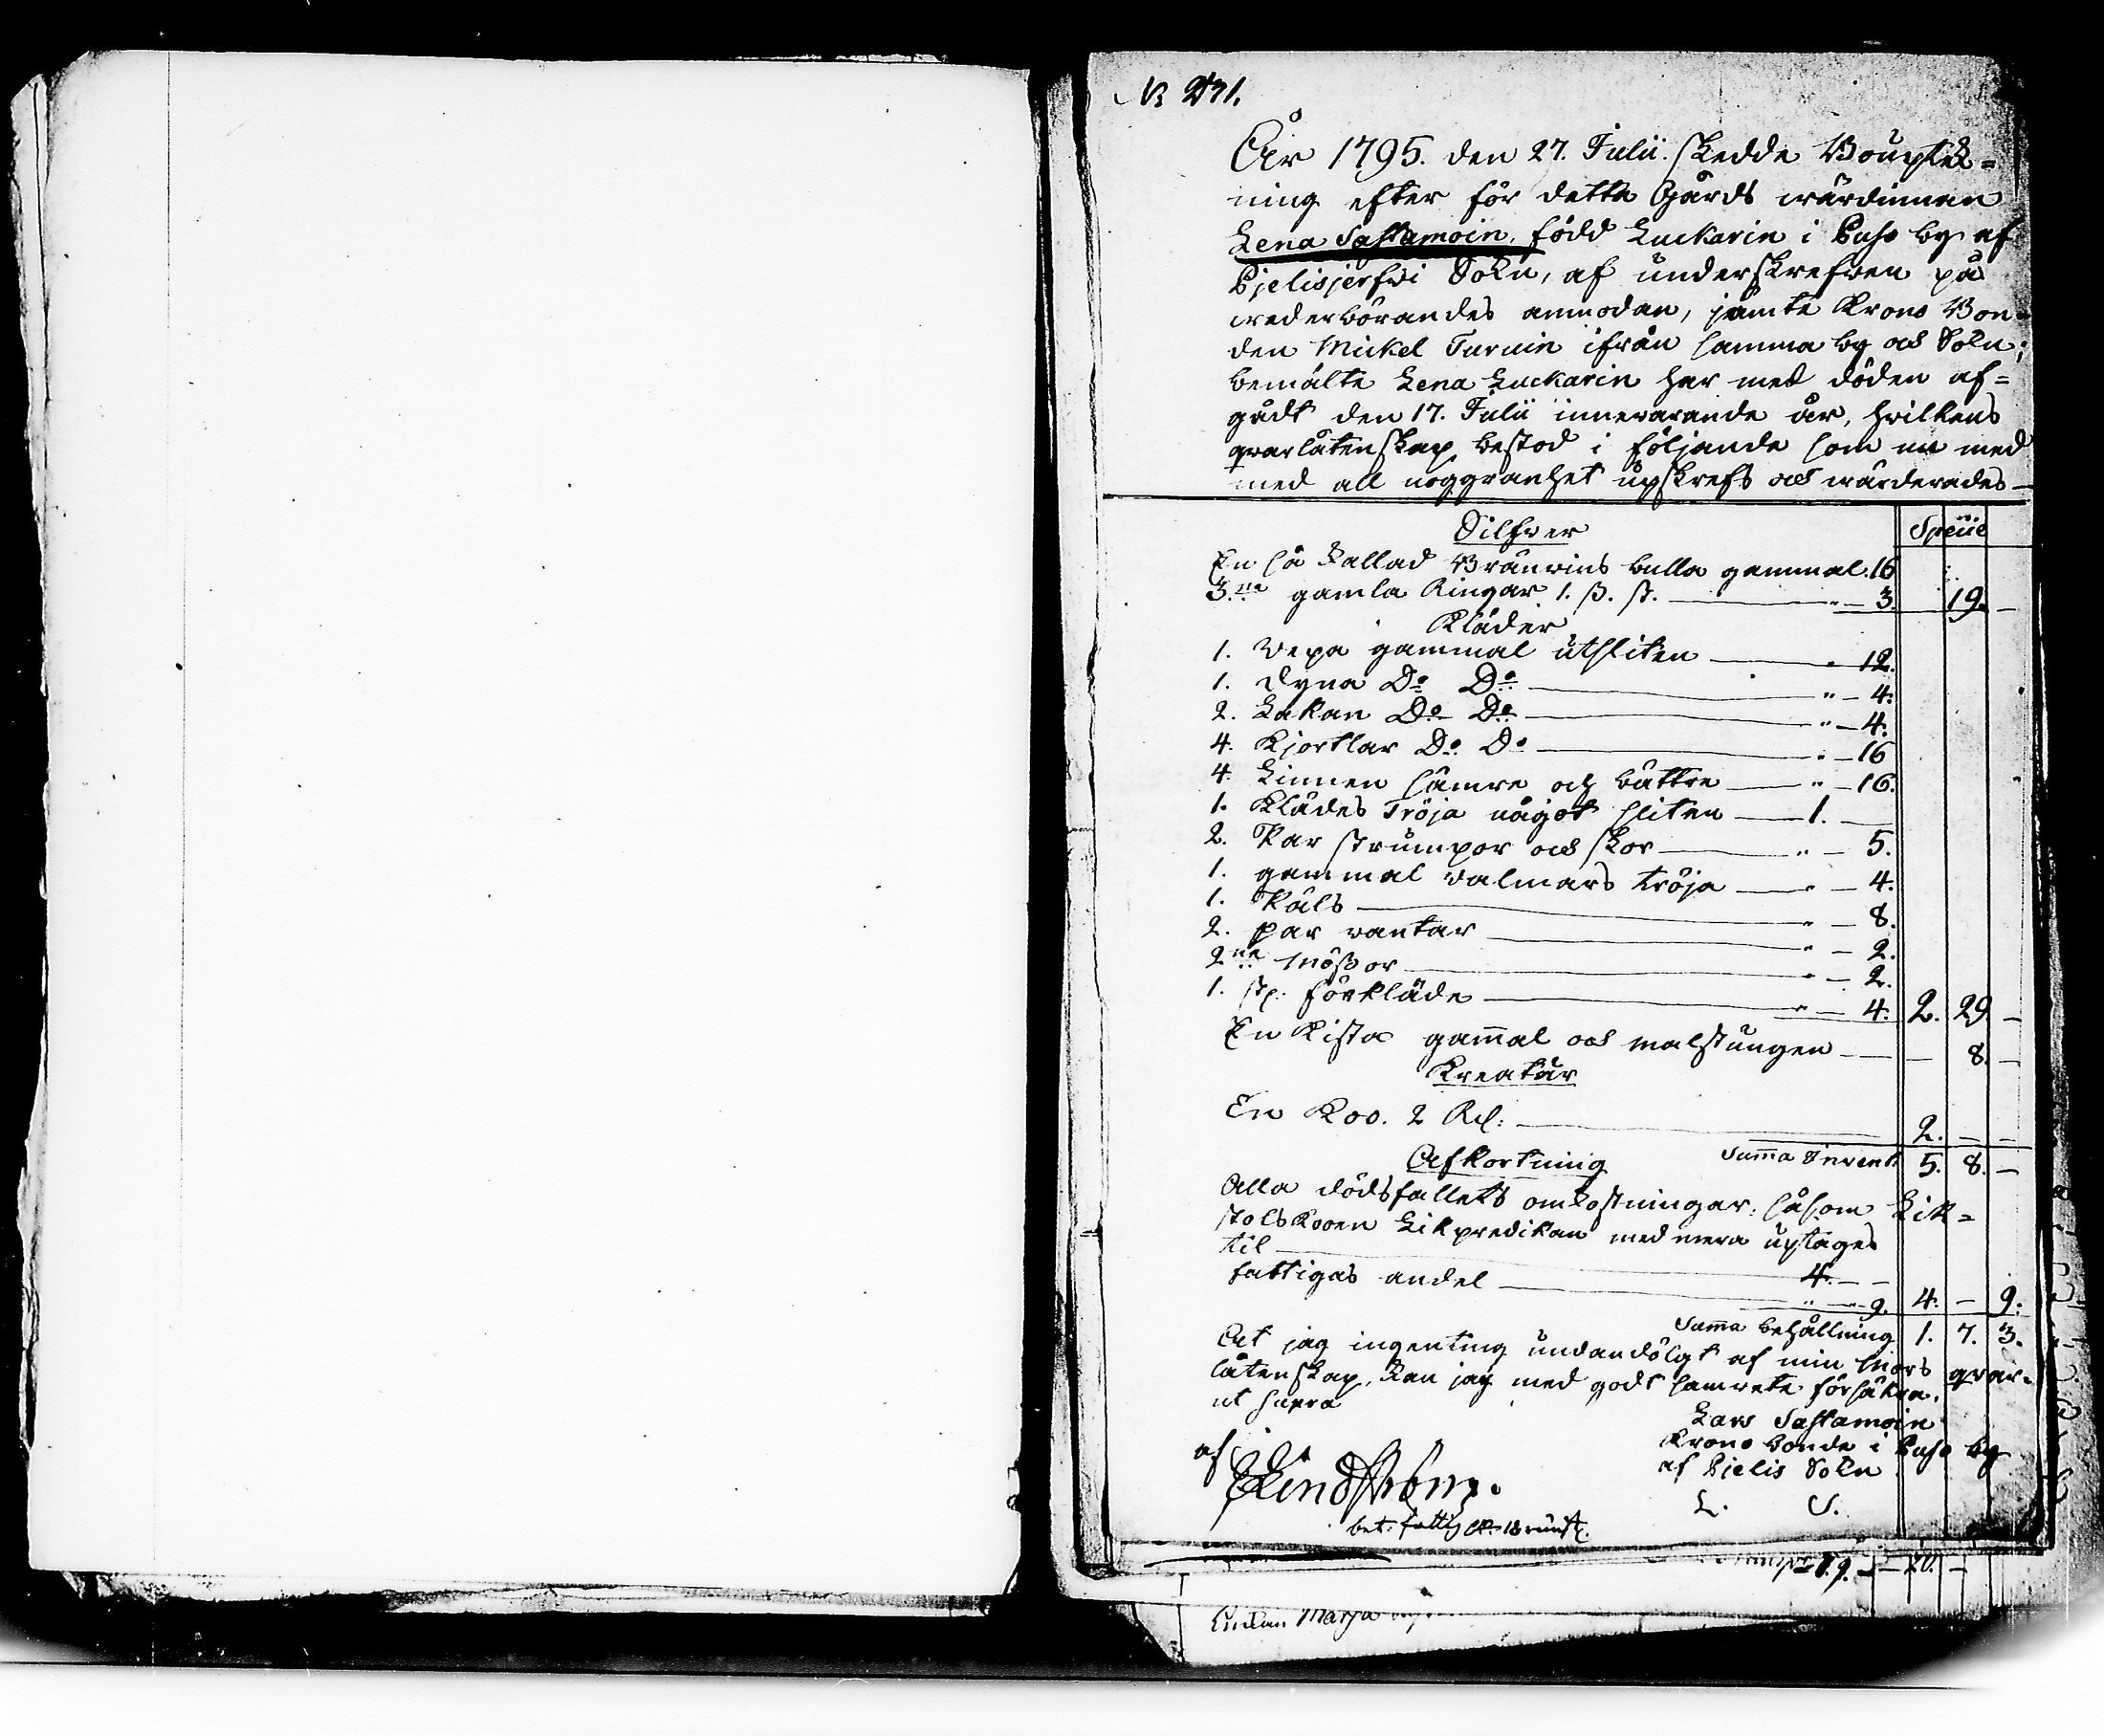 N 271.
År 1795. den 27. Julii. skedde Bouptek=
ning efter för detta Gårds wärdinnan
Lena Sastamoin, född Luckarin i Puso by af
Pjelisjerfwi Sokn, af underskrefven på
wederbörandes anmodan, jämte Krono Bon-
den Mickel Turuin ifrån samma by och Sokn;
bemälte Lena Luckarin har med döden af=
gådt den 17. Julii innevarande år, hvilkens
qvarlåtenskap bestod i följande som nu med
med all noggranhet upskrefs och wärderades
Silfwer Speciie
En så kallad Bränvins bulla gammal. 16
3.ne gamla Ringar 1. ß. st. " 3. 19. —
Kläder
1. Vepa gammal utsliten " 12.
1. dyna Do Do " 4.
2. Lakan Do Do " 4.
4. Kjortlar Do Do " 16
4. Linnen sämre och bättre " 16.
1. Klädes Tröja något sliten 1. —
2. Par strumpor och skor " 5.
1. gammal valmars tröja " 4.
1. Päls " 8.
2. par vantar " 2.
2ne Mößor " 2.
1. st. förkläde " 4. 2. 29 —
En Kista gam̄al och malstungen — 8. —
Kreatur
En Koo. 2 Rd: 2. — —
Afkortning Sum̄a Invent: 5. 8. —
Alla dödsfallets omkostningar: såsom Lik=
stolskoen Likpredikan med mera uptages
til 4. — —
fattigas andel " — 9. 4. — 9.
Sum̄a behållning 1. 7. 3.
At jag ingenting undandölgt af min Mors qvar-
låtenskap, kan jag med godt samvete försäkra.
ut supra
Lars Sastamoin
Krono bonde i Puso by
af Pjelis Sokn
L. S.
af
E Lindström.
bet. fattig
Enkan Marja